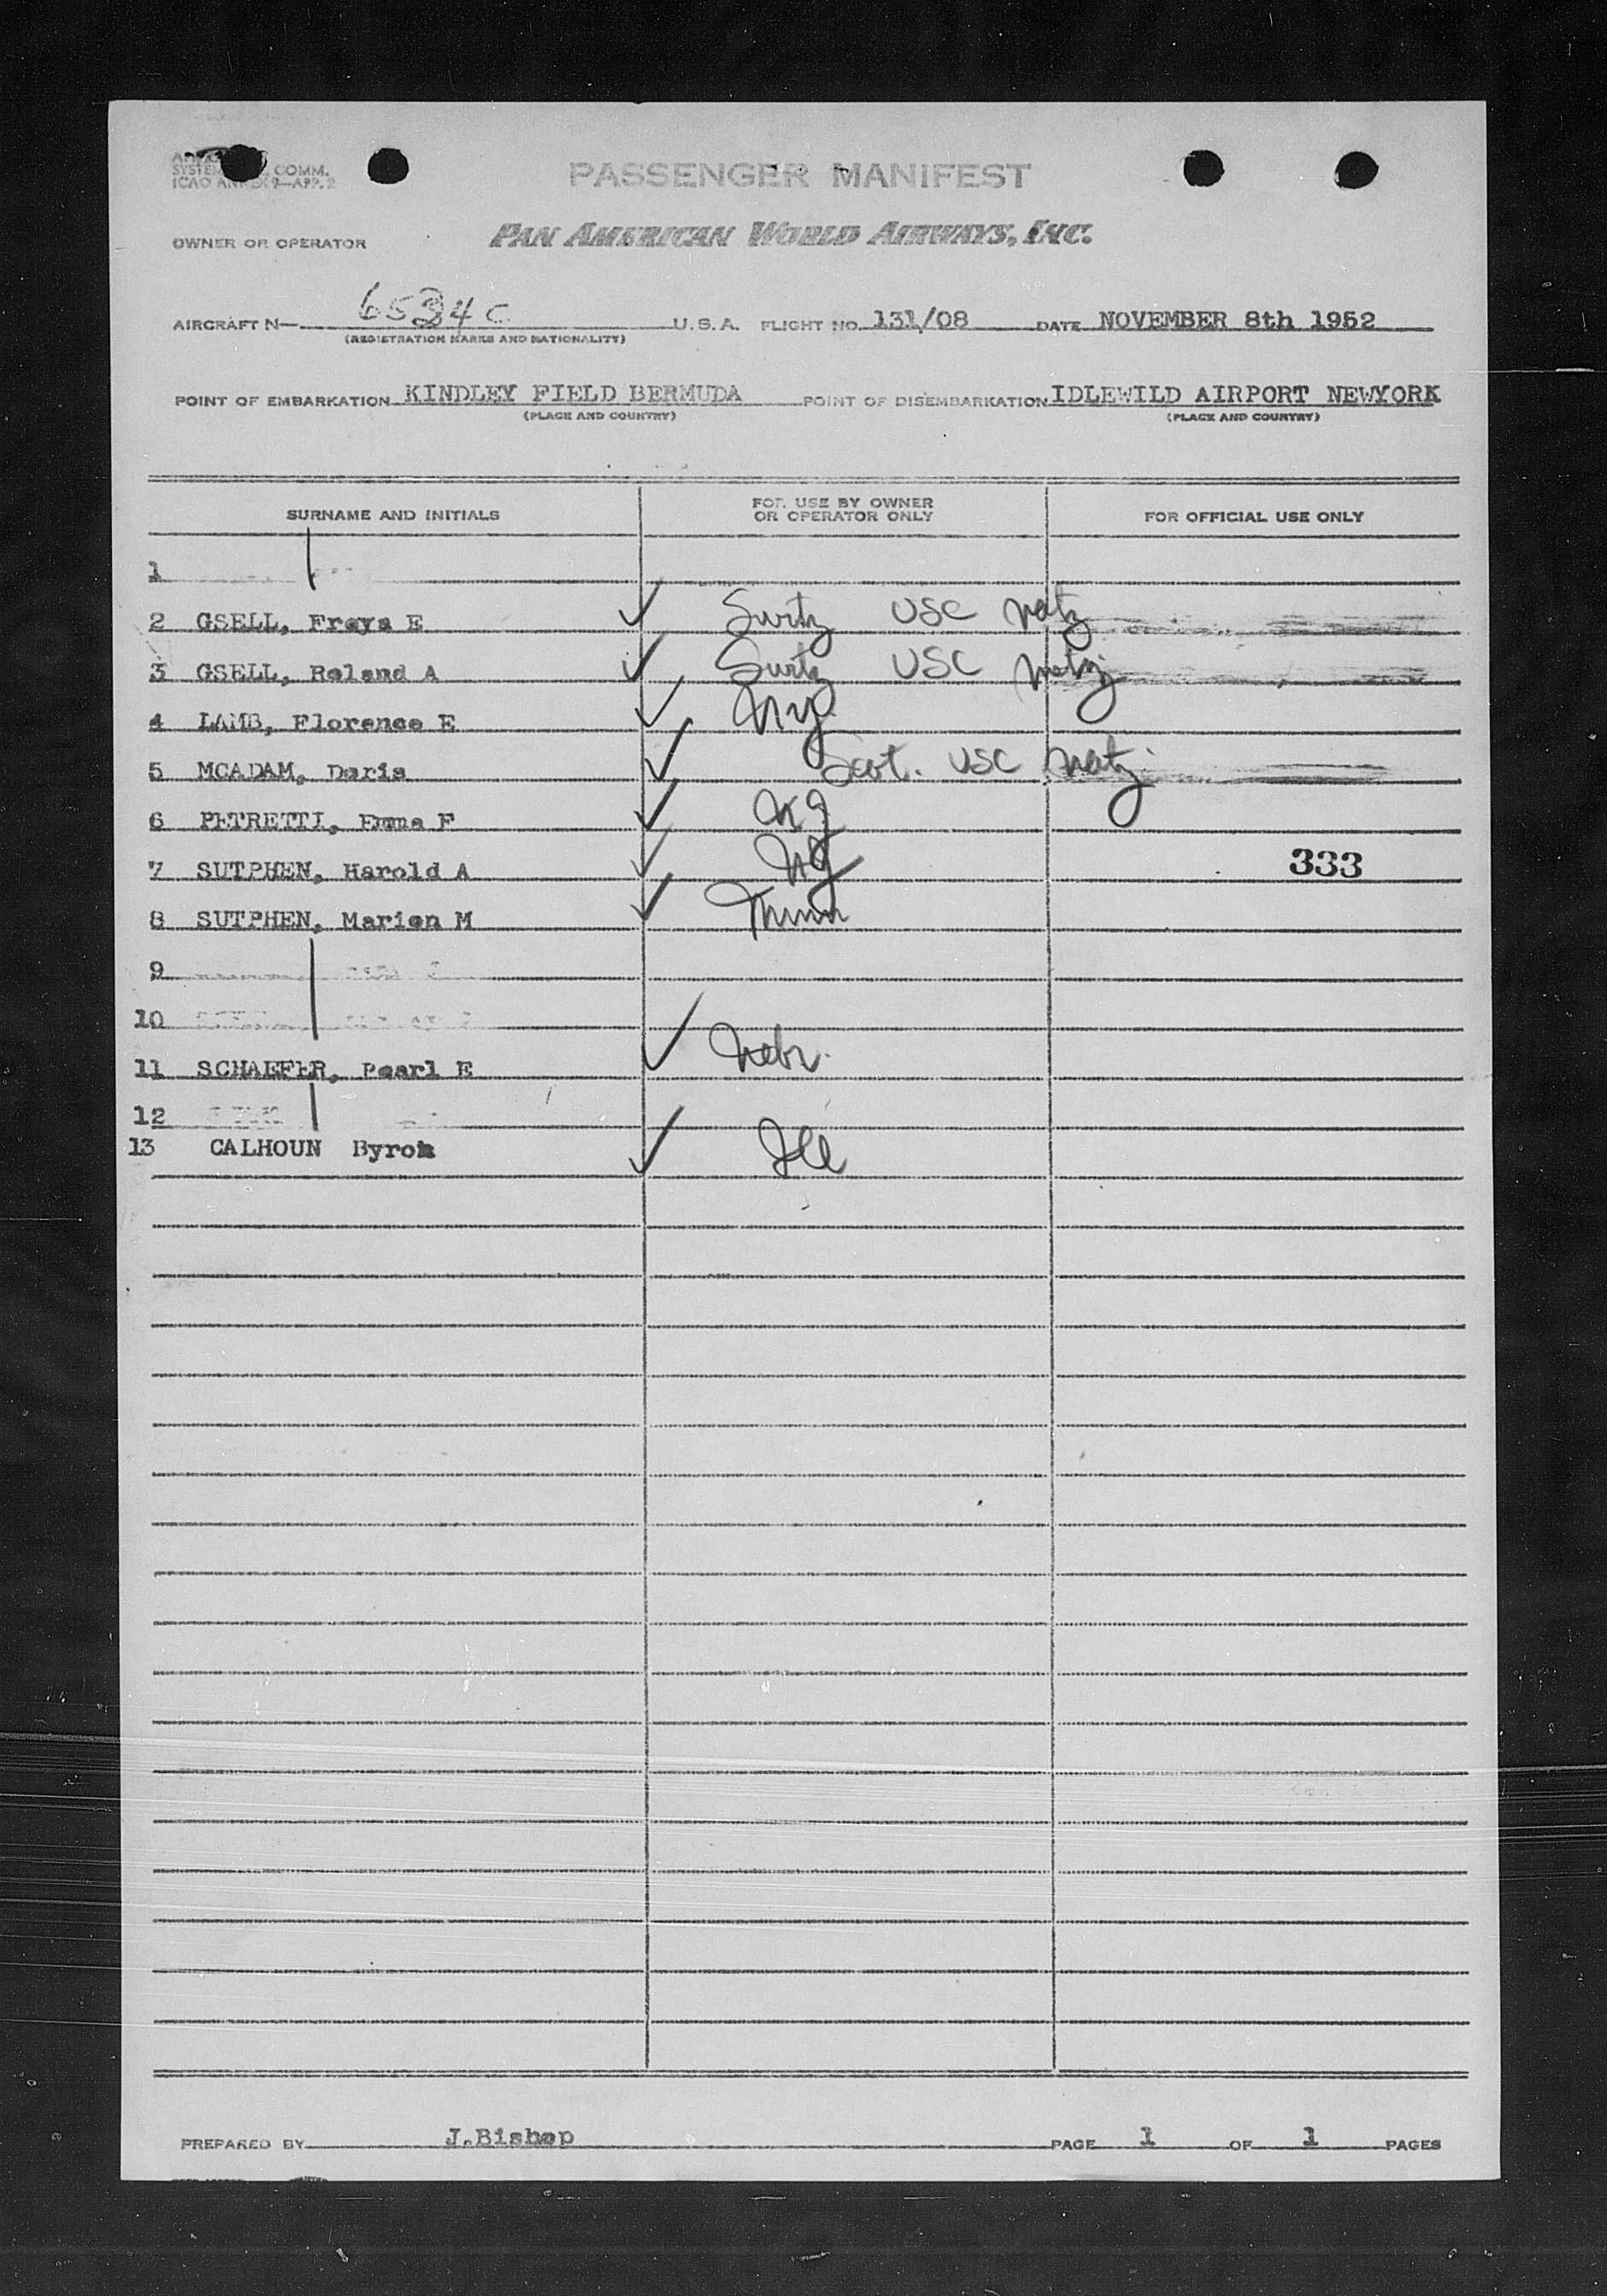 SYSTEM COMM.
ICAO ANNEX 9—APP. 2
PASSENGER MANIFEST
OWNER OR OPERATOR PAN AMERICAN WORLD AIRWAYS, INC.
AIRCRAFT N— 6534C U.S.A. FLIGHT NO. 131/08 DATE NOVEMBER 8th 1952
(REGISTRATION MARKS AND NATIONALITY)
POINT OF EMBARKATION KINDLEY FIELD BERMUDA POINT OF DISEMBARKATION IDLEWILD AIRPORT NEWYORK
(PLACE AND COUNTRY) (PLACE AND COUNTRY)
SURNAME AND INITIALS FOR USE BY OWNER OR OPERATOR ONLY FOR OFFICIAL USE ONLY
1
2 GSELL, Freya E ✓ Switz USC Natz
3 GSELL, Roland A ✓ Switz USC Natz
4 LAMB, Florence E ✓ NY.
5 MCADAM, Doris ✓ Scot. USC Natz
6 PETRETTI, Emma F ✓ NJ
7 SUTPHEN, Harold A ✓ NJ 333
8 SUTPHEN, Marion M ✓ Minn
9
10
11 SCHAEFER, Pearl E ✓ Nebr.
12
13 CALHOUN Byron ✓ Ill
PREPARED BY J.Bishop PAGE 1 OF 1 PAGES